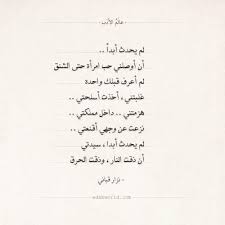 - عالم الأدب -
لم يحدث أبداً ..
أن أوصلني حب امرأة حتى الشنق
لم أعرف قبلك واحدة
غلبتني ، أخذت أسلحتي ..
هزمتني .. داخل مملكتي ..
نزعت عن وجهي أقنعتي ..
لم يحدث أبدا ، سيدتي
أن ذقت النار ، وذقت الحرق
- نزار قباني -
adabworld.com